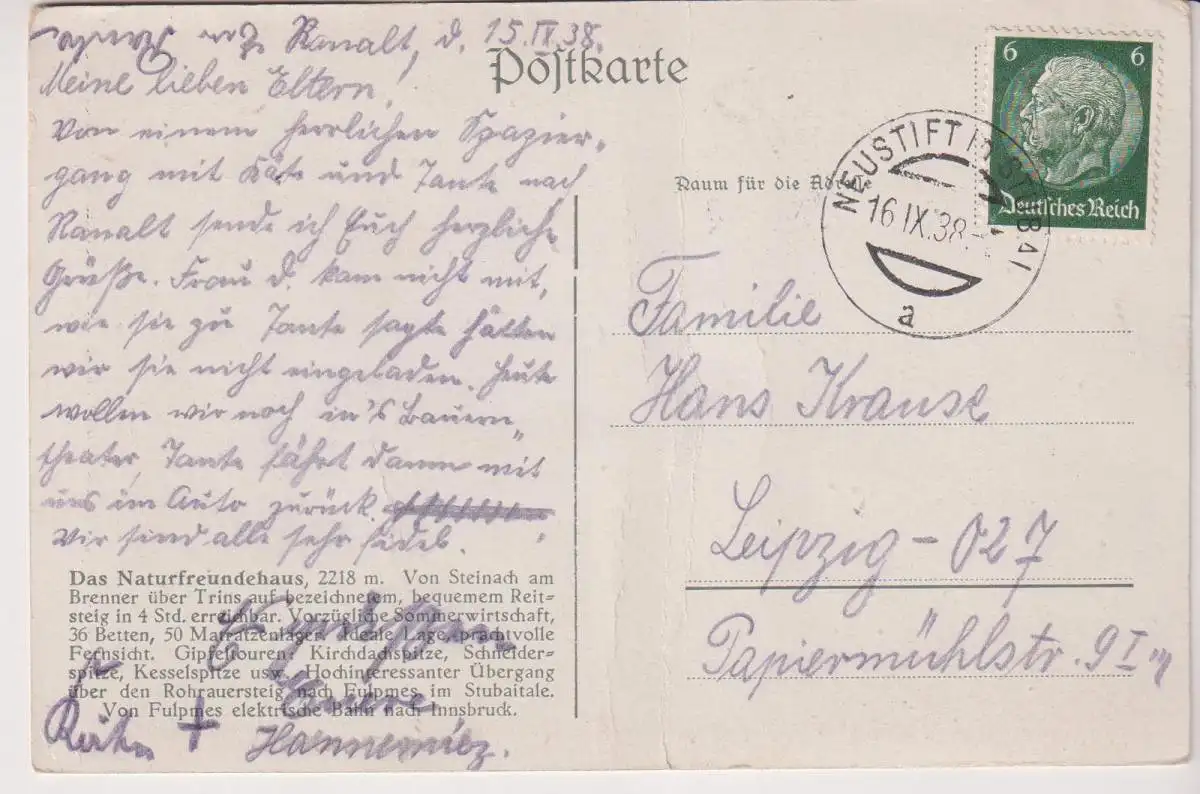 Ranalt, d. 15.IX.38.
Meine lieben Eltern!
Von einem herrlichen Spazier-
gang mit Käte und Tante nach
Ranalt sende ich Euch herzliche
Grüße. Frau D. kam nicht mit,
wie sie zu Tante sagte hätten
wir sie nicht eingeladen. Heute
wollen wir noch in's Bauern-
theater, Tante fährt dann mit
uns im Auto zurück.
Wir sind alle sehr fidel.
Das Naturfreundehaus, 2218 m. Von Steinach am
Brenner über Trins auf bezeichnetem, bequemem Reit-
steig in 4 Std. erreichbar. Vorzügliche Sommerwirtschaft,
36 Betten, 50 Matratzenlager. Ideale Lage, prachtvolle
Fernsicht. Gipfeltouren: Kirchdachspitze, Schneider-
spitze, Kesselspitze usw. Hochinteressanter Übergang
über den Rohrauersteig nach Fulpmes im Stubaitale.
Von Fulpmes elektrische Bahn nach Innsbruck.
Eure
Hannemiez.
Postkarte
6 6
Deutsches Reich
NEUSTIFT I. STUBAI
16 IX.38
a
Raum für die Adresse
Familie
Hans Krause
Leipzig - O27
Papiermühlstr. 9 I